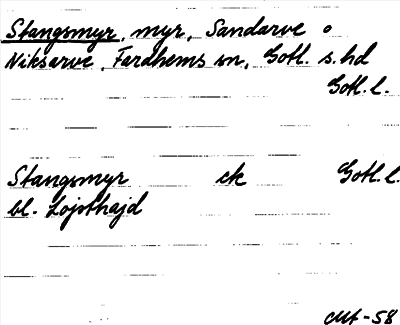 Stangsmyr, myr, Sandarve o
Niksarve, Fardhems sn, Gotl. s. hd
Gotl. l.
Stangsmyr ek Gotl. l.
bl. Lojsthajd
-58